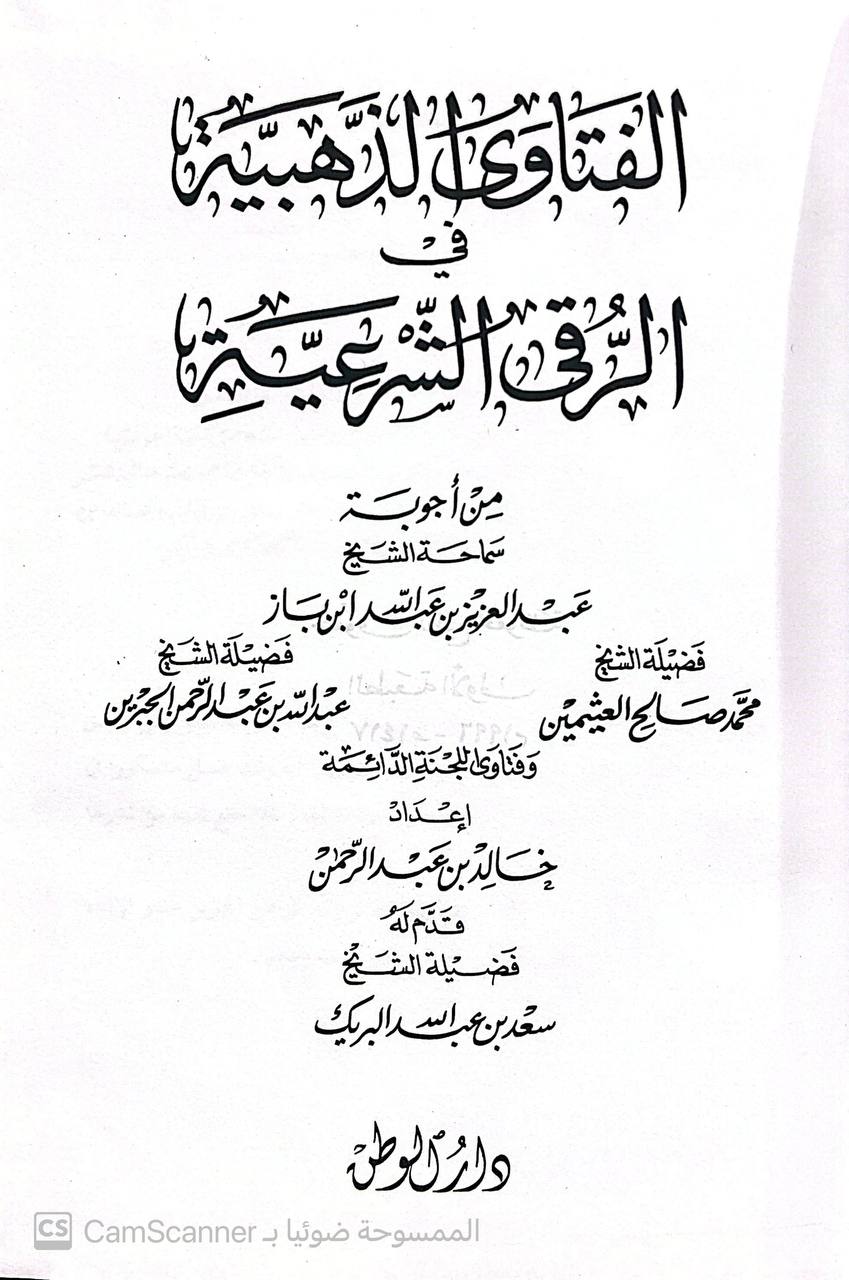 الفتاوى الذهبية
في
الرقى الشرعية
من أجوبة
سماحة الشيخ
عبد العزيز بن عبد الله ابن باز
فضيلة الشيخ
محمد صالح العثيمين
فضيلة الشيخ
عبد الله بن عبد الرحمن الجبرين
وفتاوى اللجنة الدائمة
إعداد
خالد بن عبد الرحمن
قدم له
فضيلة الشيخ
سعد بن عبد الله البريك
دار الوطن
CS CamScanner الممسوحة ضوئيا بـ